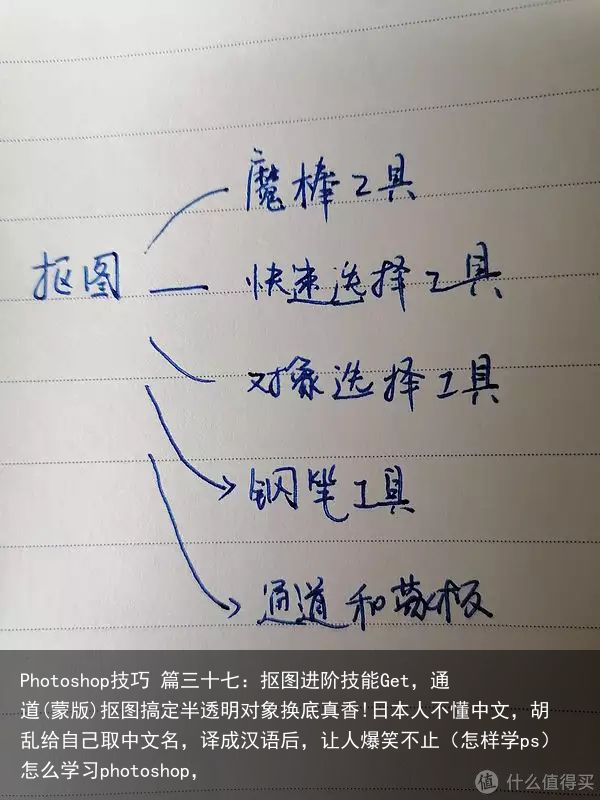 魔棒工具
抠图
快速选择工具
对象选择工具
钢笔工具
通道和蒙板
Photoshop技巧 篇三十七：抠图进阶技能Get，通
道(蒙版)抠图搞定半透明对象换底真香!日本人不懂中文，胡
乱给自己取中文名，译成汉语后，让人爆笑不止（怎样学ps）
怎么学习photoshop，
值 什么值得买